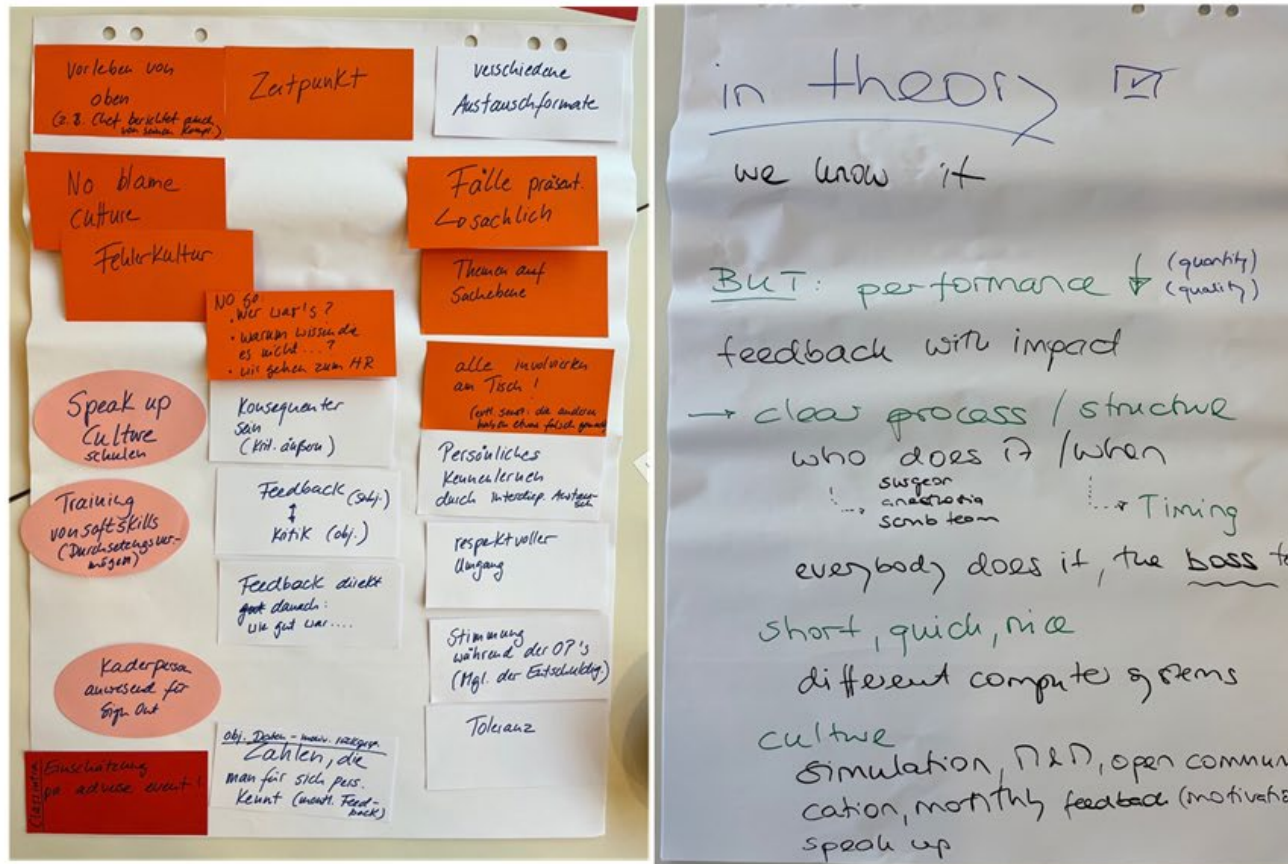 Vorleben von
oben
(z.B. Chef berichtet auch
von seinen Kompl.)
Zeitpunkt
verschiedene
Austauschformate
No blame
culture
Fehlerkultur
Fälle präsent.
↳ sachlich
Themen auf
Sachebene
NO go:
• Wer war's?
• warum wissen die
es nicht...?
• wir gehen zum HR
alle involvierten
am Tisch!
(evtl. sonst: die anderen
haben etwas falsch gemacht
Speak up
Culture
schulen
Konsequenter
sein
(Krit. äußern)
Persönliches
Kennenlernen
durch interdisp. Austau-
sch
Training
von softskills
(Durchsetzungsver-
mögen)
Feedback (subj.)
↕
Kritik (obj.)
respektvoller
Umgang
Feedback direkt
danach:
wie gut war....
Stimmung
während der OP's
(Mgl. der Entschuldig.)
Kaderperson
anwesend für
Sign Out
Toleranz
obj. Daten -
Zahlen, die
man für sich pers.
kennt (monatl. Feed-
back)
Classintra
Einschätzung
pro adverse event!
in theory ☑
we know it
BUT: performance ↓ (quantity)
(quality)
feedback with impact
→ clear process / structure
who does it / when
surgeon
anesthesia
scrub team
Timing
everybody does it, the boss to
short, quick, nice
different computer systems
culture
simulation, M&M, open commun
cation, monthly feedback (motivatio
speak up